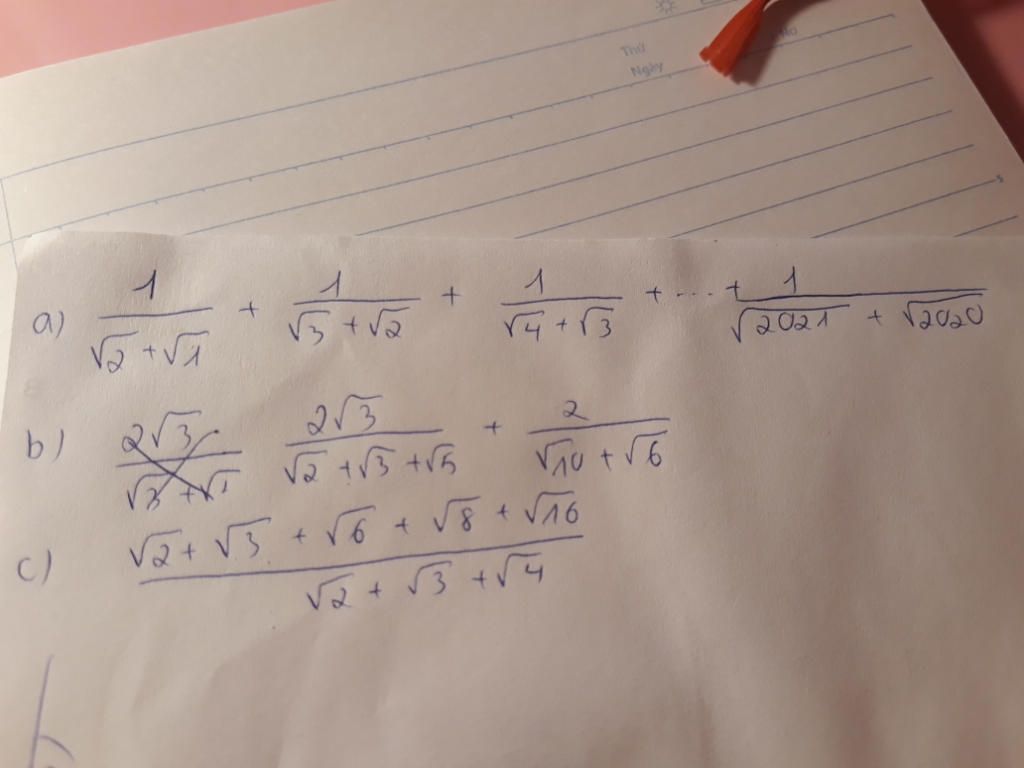 Thứ
Ngày
a) 1/(√2 + √1) + 1/(√3 + √2) + 1/(√4 + √3) + ... + 1/(√2021 + √2020)
b) 2√3/(√2 + √3 + √5) + 2/(√10 + √6)
c) (√2 + √3 + √6 + √8 + √16)/(√2 + √3 + √4)